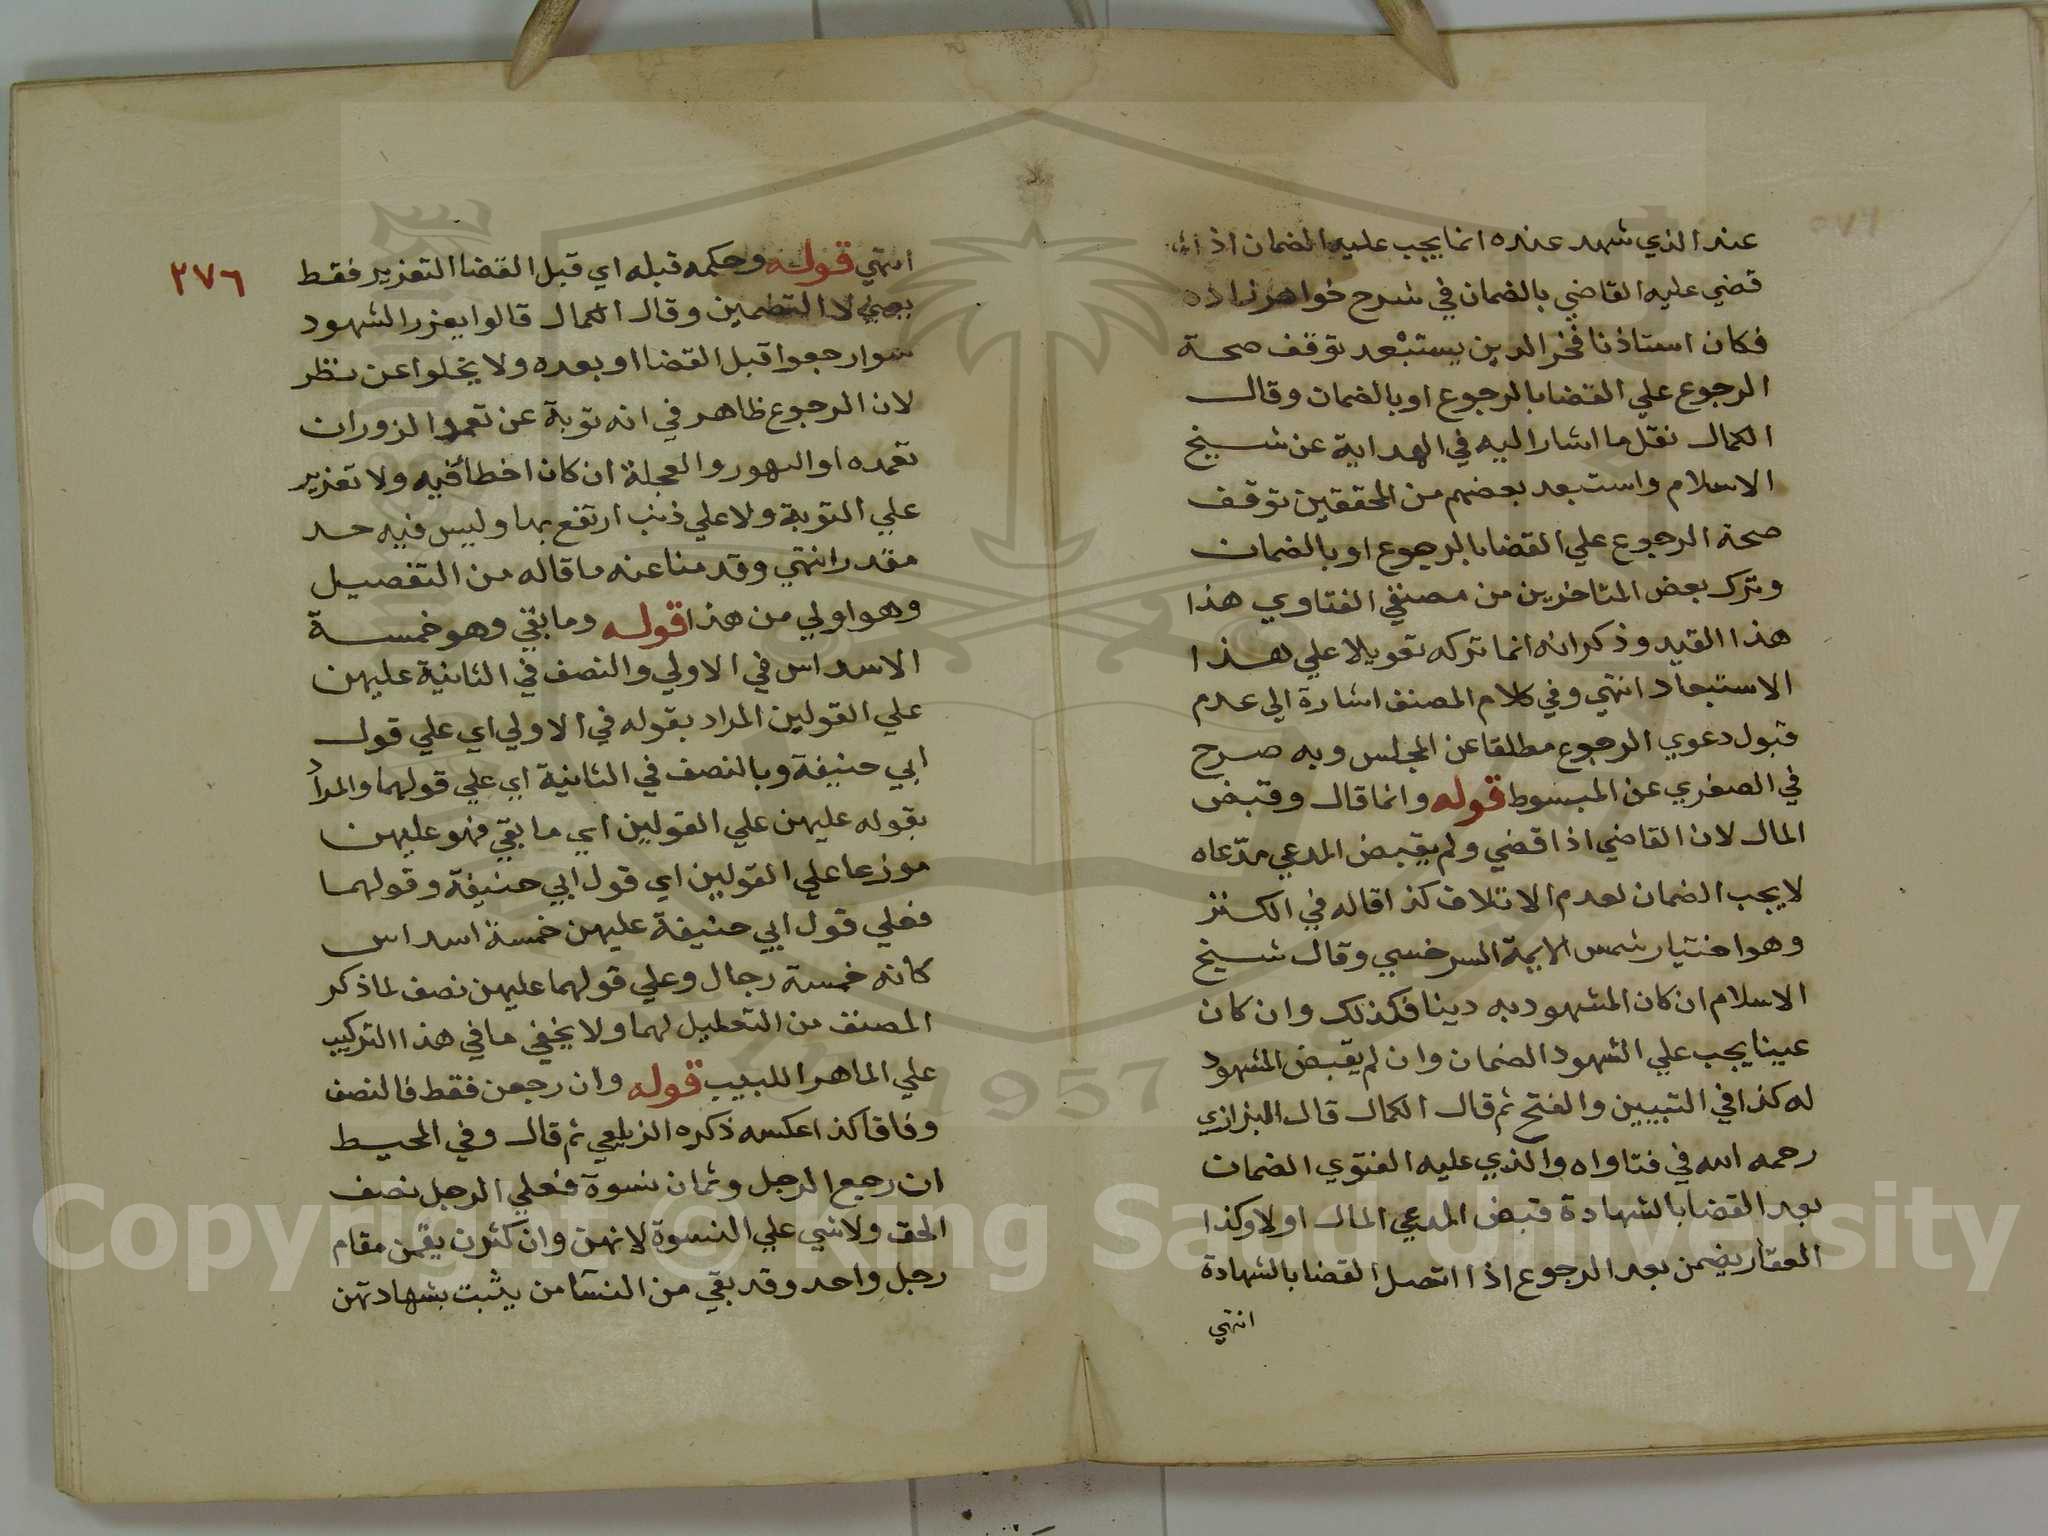 عند الذي شهد عنده انما يجب عليه الضمان اذا
قضي عليه القاضي بالضمان في شرح خواهر زاده
فكان استاذنا فخر الدين يستبعد توقف صحة
الرجوع علي القضا بالرجوع او بالضمان وقال
الكمال نقل ما اشار اليه في الهداية عن شيخ
الاسلام واستبعد بعضهم من المحققين توقف
صحة الرجوع علي القضا بالرجوع او بالضمان
وترك بعض المتاخرين من مصنفي الفتاوي هذا
هذا القيد وذكر انه انما تركه تعويلا علي هذا
الاستبعاد انتهي وفي كلام المصنف اشارة الي عدم
قبول دعوي الرجوع مطلقا عن المجلس وبه صرح
في الصغري عن المبسوط قوله وانما قال وقبض
المال لان القاضي اذا قضي ولم يقبض المدعي مدّعاه
لا يجب الضمان لعدم الاتلاف كذا قاله في الكنز
وهو اختيار شمس الايمة السرخسي وقال شيخ
الاسلام ان كان المشهود به دينا فكذلك وان كان
عينا يجب علي الشهود الضمان وان لم يقبض المشهود
له كذا في التبيين والفتح ثم قال الكمال قال البزازي
رحمه الله في فتاواه والذي عليه الفتوي الضمان
بعد القضا بالشهادة قبض المدعي المال اولا وكذا
العقار يضمن بعد الرجوع اذا اتصل القضا بالشهادة
انتهي
٢٧٦
انتهي قوله وحكمه قبله اي قبل القضا التعزير فقط
يعني لا التضمين وقال الكمال قالوا يعزر الشهود
سوا رجعوا قبل القضا او بعده ولا يخلوا عن نظر
لان الرجوع ظاهر في انه توبة عن تعمد الزور ان
تعمده او التهور والعجلة ان كان اخطأ فيه ولا تعزير
علي التوبة ولا علي ذنب ارتفع بها وليس فيه حد
مقدر انتهي وقد منا عنه ما قاله من التفصيل
وهو اولي من هذا قوله وما بقي وهو خمسة
الاسداس في الاولي والنصف في الثانية عليهن
علي القولين المراد بقوله في الاولي اي علي قول
ابي حنيفة وبالنصف في الثانية اي علي قولهما والمراد
بقوله عليهن علي القولين اي ما بقي فهو عليهن
موزعا علي القولين اي قول ابي حنيفة وقولهما
فعلي قول ابي حنيفة عليهن خمسة اسداس
كانه خمسة رجال وعلي قولهما عليهن نصف لما ذكر
المصنف من التعليل لهما ولا يخفي ما في هذا التركيب
علي الماهر اللبيب قوله وان رجعن فقط فالنصف
وفاقا كذا عكسه ذكره الزيلعي ثم قال وفي المحيط
ان رجع الرجل وثمان نسوة فعلي الرجل نصف
الحق ولا شي علي النسوة لانهن وان كثرن يقمن مقام
رجل واحد وقد بقي من النسآ من يثبت بشهادتهن
Copyright © King Saud University
1957